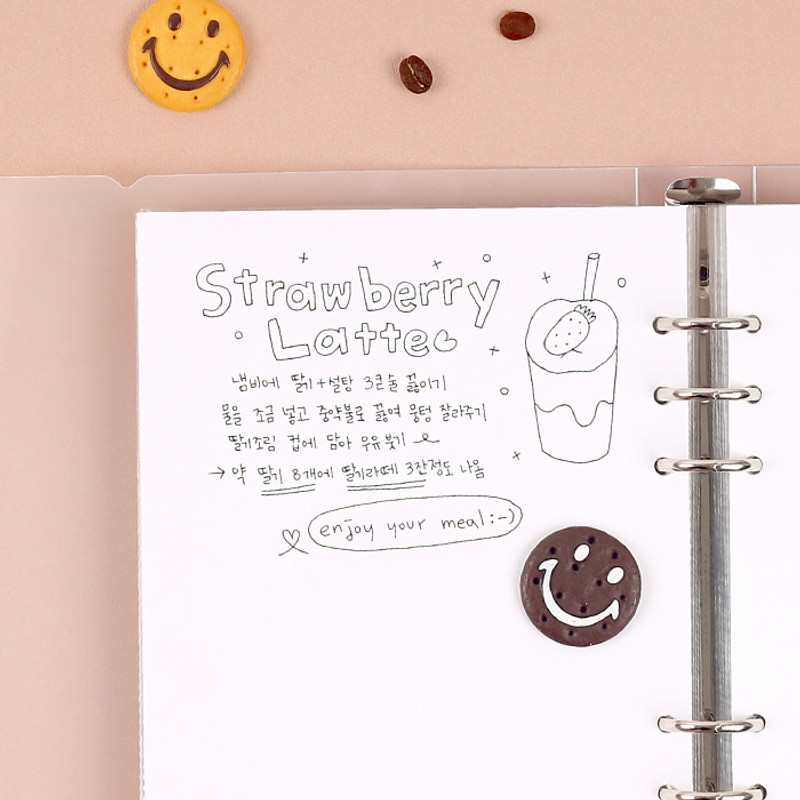 Strawberry
Latte
냄비에 딸기+설탕 3큰술 끓이기
물을 조금 넣고 중약불로 끓여 뭉텅 잘라주기
딸기조림 컵에 담아 우유 붓기
→ 약 딸기 8개에 딸기라떼 3잔정도 나옴
enjoy your meal:-)